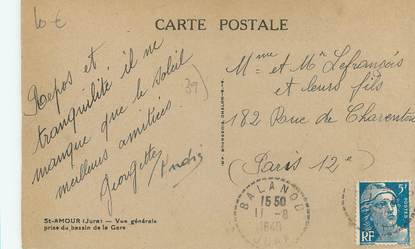 10 €
CARTE POSTALE
Repos et
tranquilité, il ne
manque que le soleil
meilleures amitiées.
Georgette
André
39
Mme et Mr Lefrançois
et leurs fils
182 Rue de Charenton
(Paris 12e)
BALANOD
15 50
11 -8
JURA
5F
RF
St-AMOUR (Jura) — Vue générale
prise du bassin de la Gare